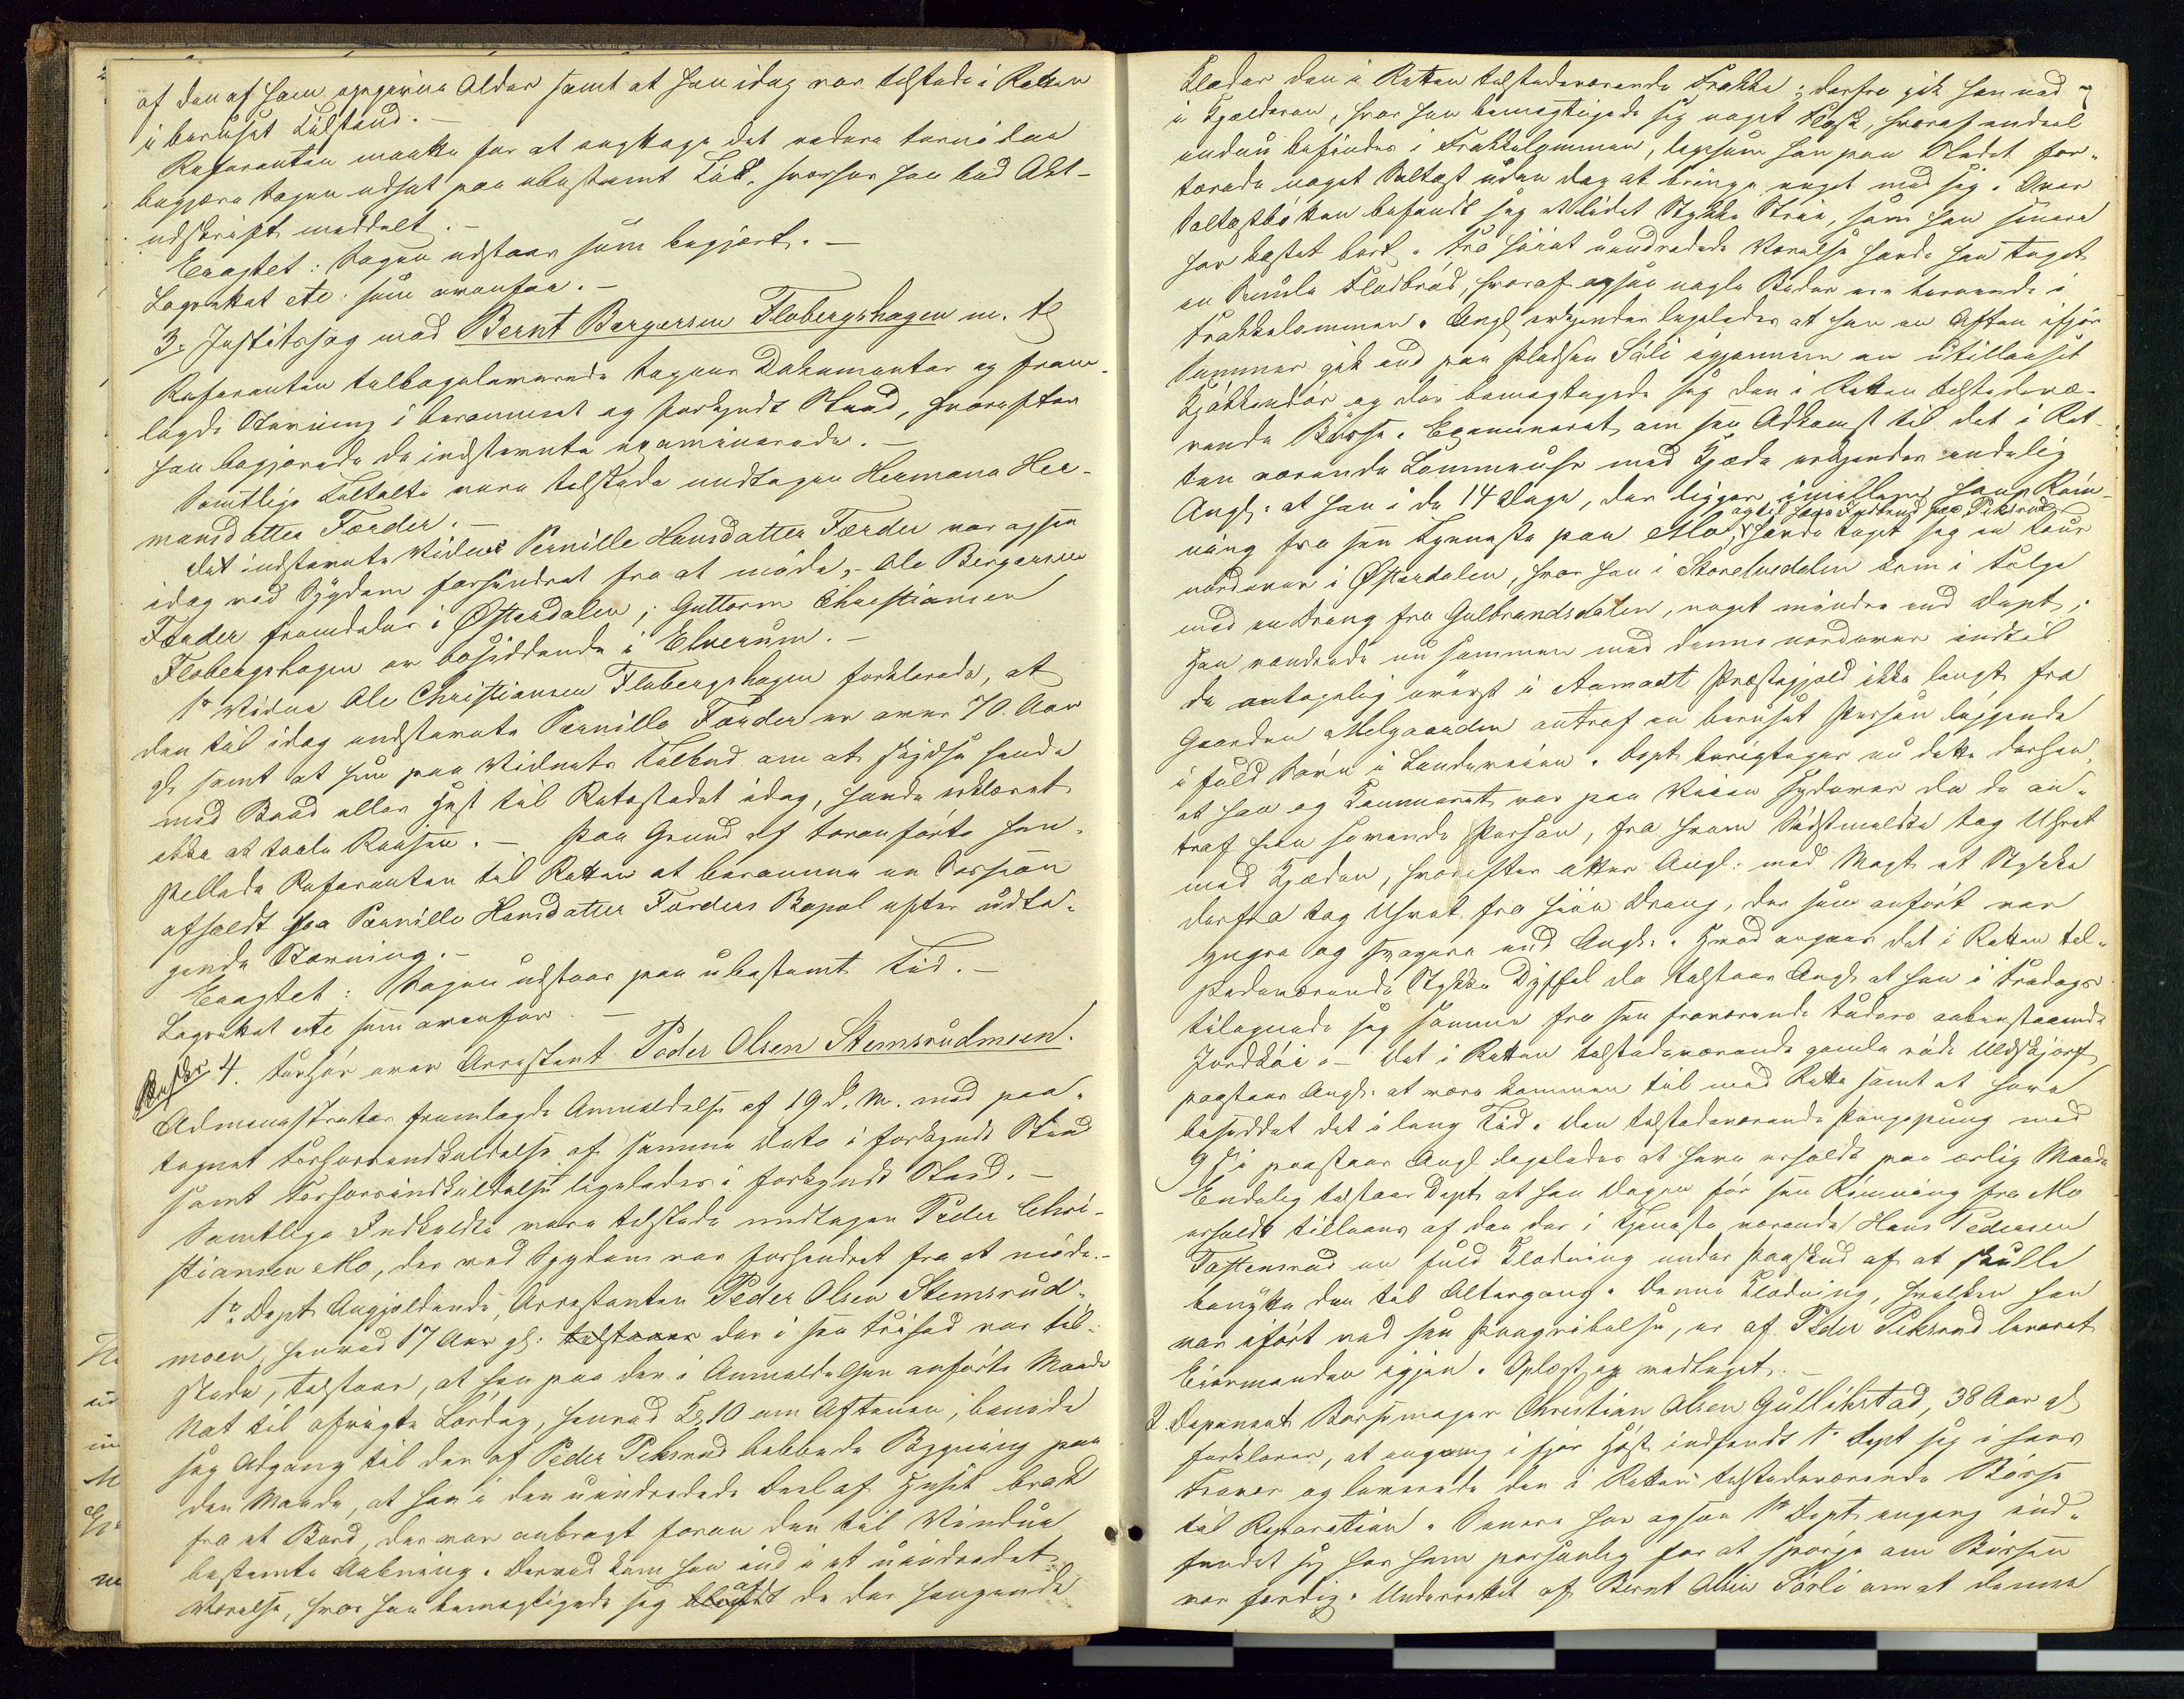 af den af ham opgivne Alder samt at han idag var tilstede i Retten
i beruset Tilstand. –
Referenten maatte for at engstage det videre
begjære Sagen udsat paa ubestemt Tid, hvorfor han bad Akt-
udskrift meddelt. –
Eragtet: Sagen udstaar som begjært. –
Lagrettet etc. som ovenfor. –
3. Justitssag mod Bernt Bergersen Flobergshagen m. fl.
Referenten tilbageleverede Sagens Dokumenter og frem-
lagde Stævning i berammet og forkyndt Stand, hvorefter
han begjærede de indstevnte examinerede. –
Samtlige Tiltalte vare tilstede undtagen Hermana Her-
mansdatter Forder. –
Det indstevnte Vidne Pernille Hansdatter Forder var ogsaa
idag ved Sygdom forhindret fra at møde, – Ole Bergersen
Forder fremdeles i Østerdalen; Guttorm Christiansen
Flobergshagen er bosiddende i Elverum. –
1te Vidne Ole Christiansen Flobergshagen forklarede, at
den til idag indstevnte Pernille Forder er over 70 Aar
gl. samt at hun paa Vidnets Tilbud om at skydse hende
med Baad eller Hest til Retsstedet idag, havde erklæret
ikke at taale Reisen. – Paa Grund af det anførte hen-
stillede Referenten til Retten at beramme en Session
afholdt paa Pernille Hansdatter Forders Bopæl efter udta-
gende Stævning. –
Eragtet: Sagen udstaar paa ubestemt Tid. –
Lagrettet etc som ovenfor. –
Beskr. 4. Forhør over Arrestant Peder Olsen Stemsrudmoen.
Administrator fremlagde Anmeldelse af 19 d. M. med paa-
tegnet Forhørsindkaldelse af samme Dato i forkyndt Stand
samt Forhørsindkaldelse ligeledes i forkyndt Stand. –
Samtlige Indkaldte vare tilstede undtagen Peder Chri-
stiansen Mo, der ved Sygdom var forhindret fra at møde. –
1te Dept. Angjeldende, Arrestanten Peder Olsen Stemsrud-
moen, henved 17 Aar gl. tilstaaer der i sin Frihed var til-
stede, tilstaar, at han paa den i Anmeldelsen anførte Maade
Nat til afvigte Lørdag, henved Kl. 10 om Aftenen, banede
sig Adgang til den af Peder Peksrud beboede Bygning paa
den Maade, at han i den uindredede Deel af Huset brød
fra et Bord, der var anbragt foran den til Vindue
bestemte Aabning. Derved kom han ind i et uindredet
Værelse, hvor han bemægtigede sig de der hængende
Klæder den i Retten tilstedeværende Frakke; derfra gik han ned
i Kjelderen, hvor han bemægtigede sig noget Flesk, hvoraf endeel
endnu befindes i Frakkelommen, ligesom han paa Stedet for-
tærede noget Saltost uden dog at bringe noget med sig. Over
Saltostbøtten befandt sig et lidet Stykke Strie, som han senere
har kastet bort. Fra hiint uindredede Værelse havde han taget
en Smule Fladbrød, hvoraf ogsaa nogle Biter ere værende i
Frakkelommen. Angl. erkjender ligeledes at han en Aften ifjor
Sommer gik ind paa Pladsen Sørli igjennem en utillaaset
Kjøkkendør og der bemægtigede sig den i Retten tilstedevæ-
rende Børse. Examineret om sin Adkomst til det i Ret-
ten værende Lommeuhr med Kjæde erkjender endelig
Angl. at han i de 14 Dage, der ligger imellem hans Røm-
ning fra sin Tjeneste paa Mo, og til hans Indbrud paa Peksrud, havde taget sig en Tour
nordover i Østerdalen, hvor han i Storelvedalen kom i Følge
med en Dreng fra Gulbrandsdalen, noget mindre end Dept.;
Han vandrede nu sammen med denne nordover indtil
de antagelig øverst i Aamodt Præstegjeld ikke langt fra
Gaarden Melgaarden antraf en beruset Person liggende
i fuld Søvn i Landeveien. Dept. berigtiger nu dette derhen,
at han og Kammerat var paa Veien sydover da de an-
traf hiin sovende Person, fra hvem Sidstmeldte tog Uhret
med Kjæden, hvorefter atter Angl. med Magt et Stykke
derfra tog Uhret fra hiin Dreng, der som anført var
yngre og svagere end Angl. Hvad angaar det i Retten til-
stedeværende Stykke Dyffel da tilstaar Angl. at han i Fredags
tilegnede sig samme fra sin fraværende Faders aabenstaaende
Jordkøi. – Det i Retten tilstedeværende gamle røde Uldskjerf
paastaar Angl. at være kommen til med Rette samt at have
besiddet det i lang Tid. Den tilstedeværende Pengepung med
9 ß i paastaar Angl. ligeledes at have erholdt paa ærlig Maade
Endelig tilstaar Dept. at han Dagen før sin Rømning fra Mo
erholdt tillaans af den der i Tjeneste værende Hans Pedersen
Tostensrud en fuld Klædning under Paaskud af at skulle
benytte den til Altergang. Denne Klædning, hvilken han
var iført ved sin Paagribelse, er af Peder Peksrud leveret
Eiermanden igjen. Oplæst og vedtaget. –
2. Deponent Børsemager Christian Olsen Gullikstad, 38 Aar gl.
forklarer, at engang i fjor Høst indfandt 1te Dept. sig i hans
Fravær og leverede den i Retten tilstedeværende Børse
til Reparation. Senere har ogsaa 1te Dept. engang ind-
fundet sig hos ham personlig for at spørge om Børsen
var færdig. Underrettet af Bernt Olsen Sørli om at denne